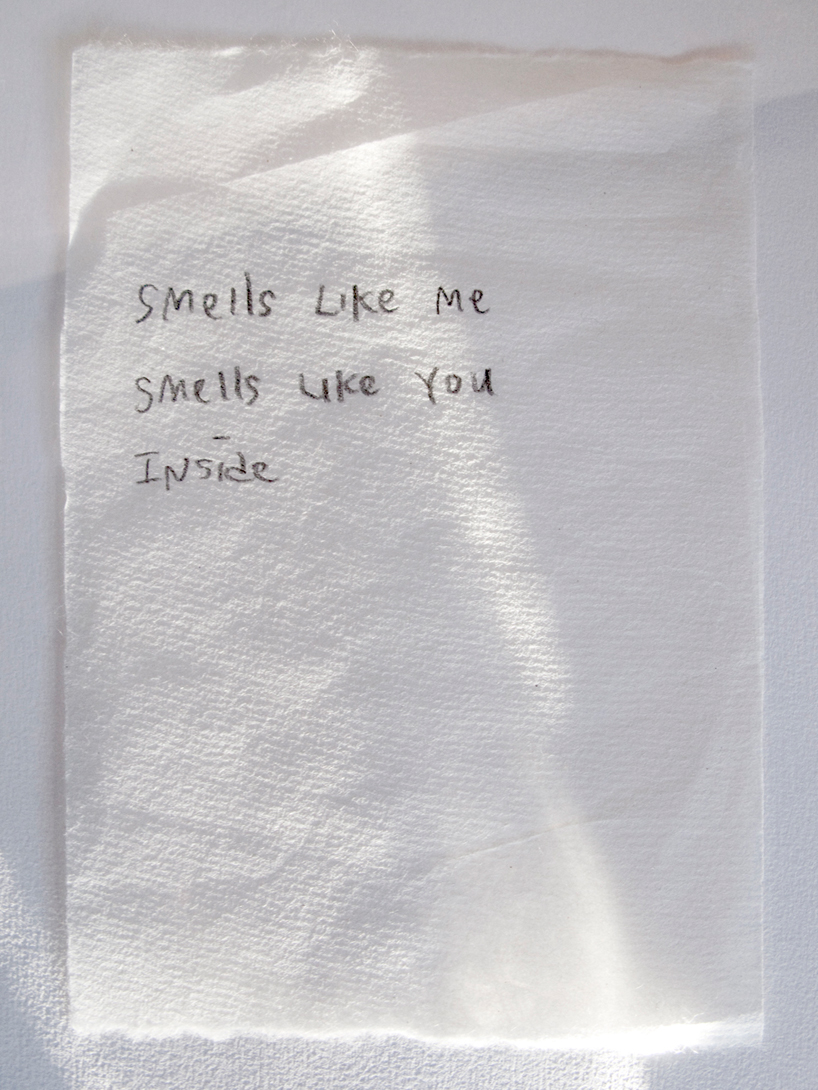 smells Like me
smells Like You
Inside